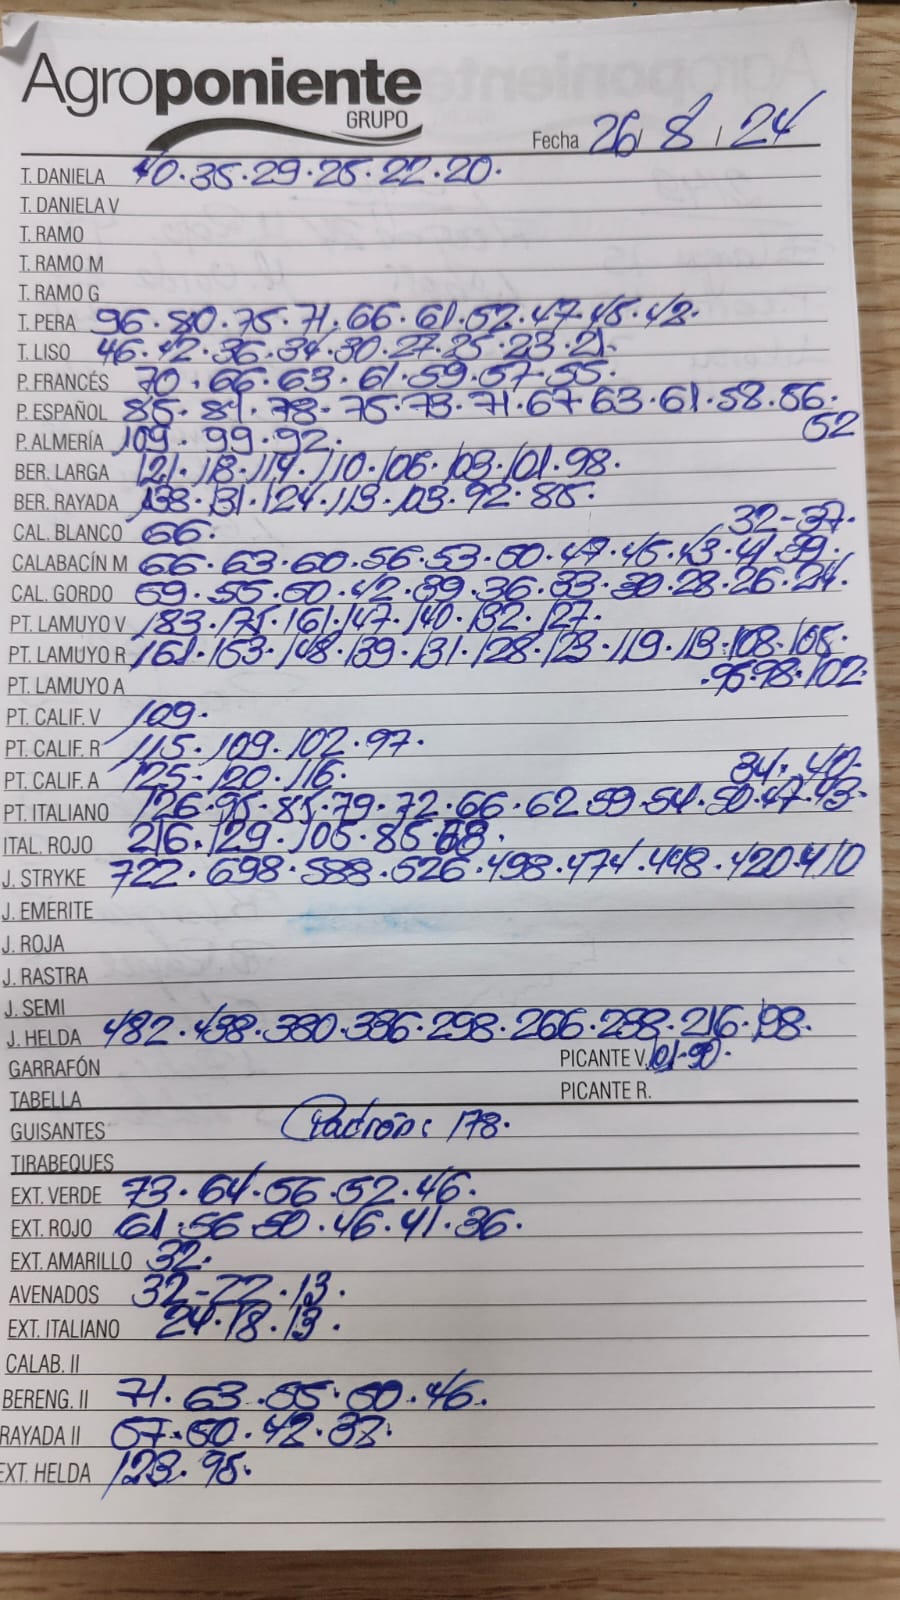 Agroponiente
GRUPO
Fecha 26/ 8 / 24
T. DANELA 40·35·29·25·22·20·
T. DANIELA V
T. RAMO
T. RAMO M
T. RAMO G
T. PERA 96·80·75·71·66·61·52·47·45·42·
T. LISO 46·42·36·34·30·27·25·23·21·
P. FRANCÉS 70·66·63·61·59·57·55·
P. ESPAÑOL 85·81·78-75·73·71·67·63·61·58·56·
52
P. ALMERÍA 109·99·92·
BER. LARGA 121·118·114·110·106·103·101·98·
BER. RAYADA 138·131·124·113·103·92·85·
CAL. BLANCO 66·
32-37·
CALABACÍN M 66·63·60·56·53·50·47·45·43·41·39·
CAL. GORDO 69·55·50·42·39·36·33·30·28·26·24·
PT. LAMUYO V 183·175·161·147·140·132·127·
PT. LAMUYO R 161·153·148·139·131·128·123·119·113·108·105·
·95·98·102·
PT. LAMUYO A
PT. CALIF. V 109·
PT. CALIF. R 115·109·102·97·
PT. CALIF. A 125-120·116·
34·40·
PT. ITALIANO 126·95·85·79·72·66·62·59·54·50·47·43·
ITAL. ROJO 216·129·105·85·68·
J. STRYKE 722·698·588·526·498·474·448·420·410
J. EMERITE
J. ROJA
J. RASTRA
J. SEMI
J. HELDA 482·438·380·336·298·266·238·216·198·
GARRAFÓN
PICANTE V. 101·90·
TABELLA
PICANTE R.
GUISANTES
Padrón: 178·
TIRABEQUES
EXT. VERDE 73·64·56·52·46·
EXT. ROJO 61·56·50·46·41·36·
EXT. AMARILLO 32·
AVENADOS 32-22·13·
EXT. ITALIANO 24·18·13·
CALAB. II
BERENG. II 71·63·55·50·46·
RAYADA II 57·50·42·38·
EXT. HELDA 123·95·